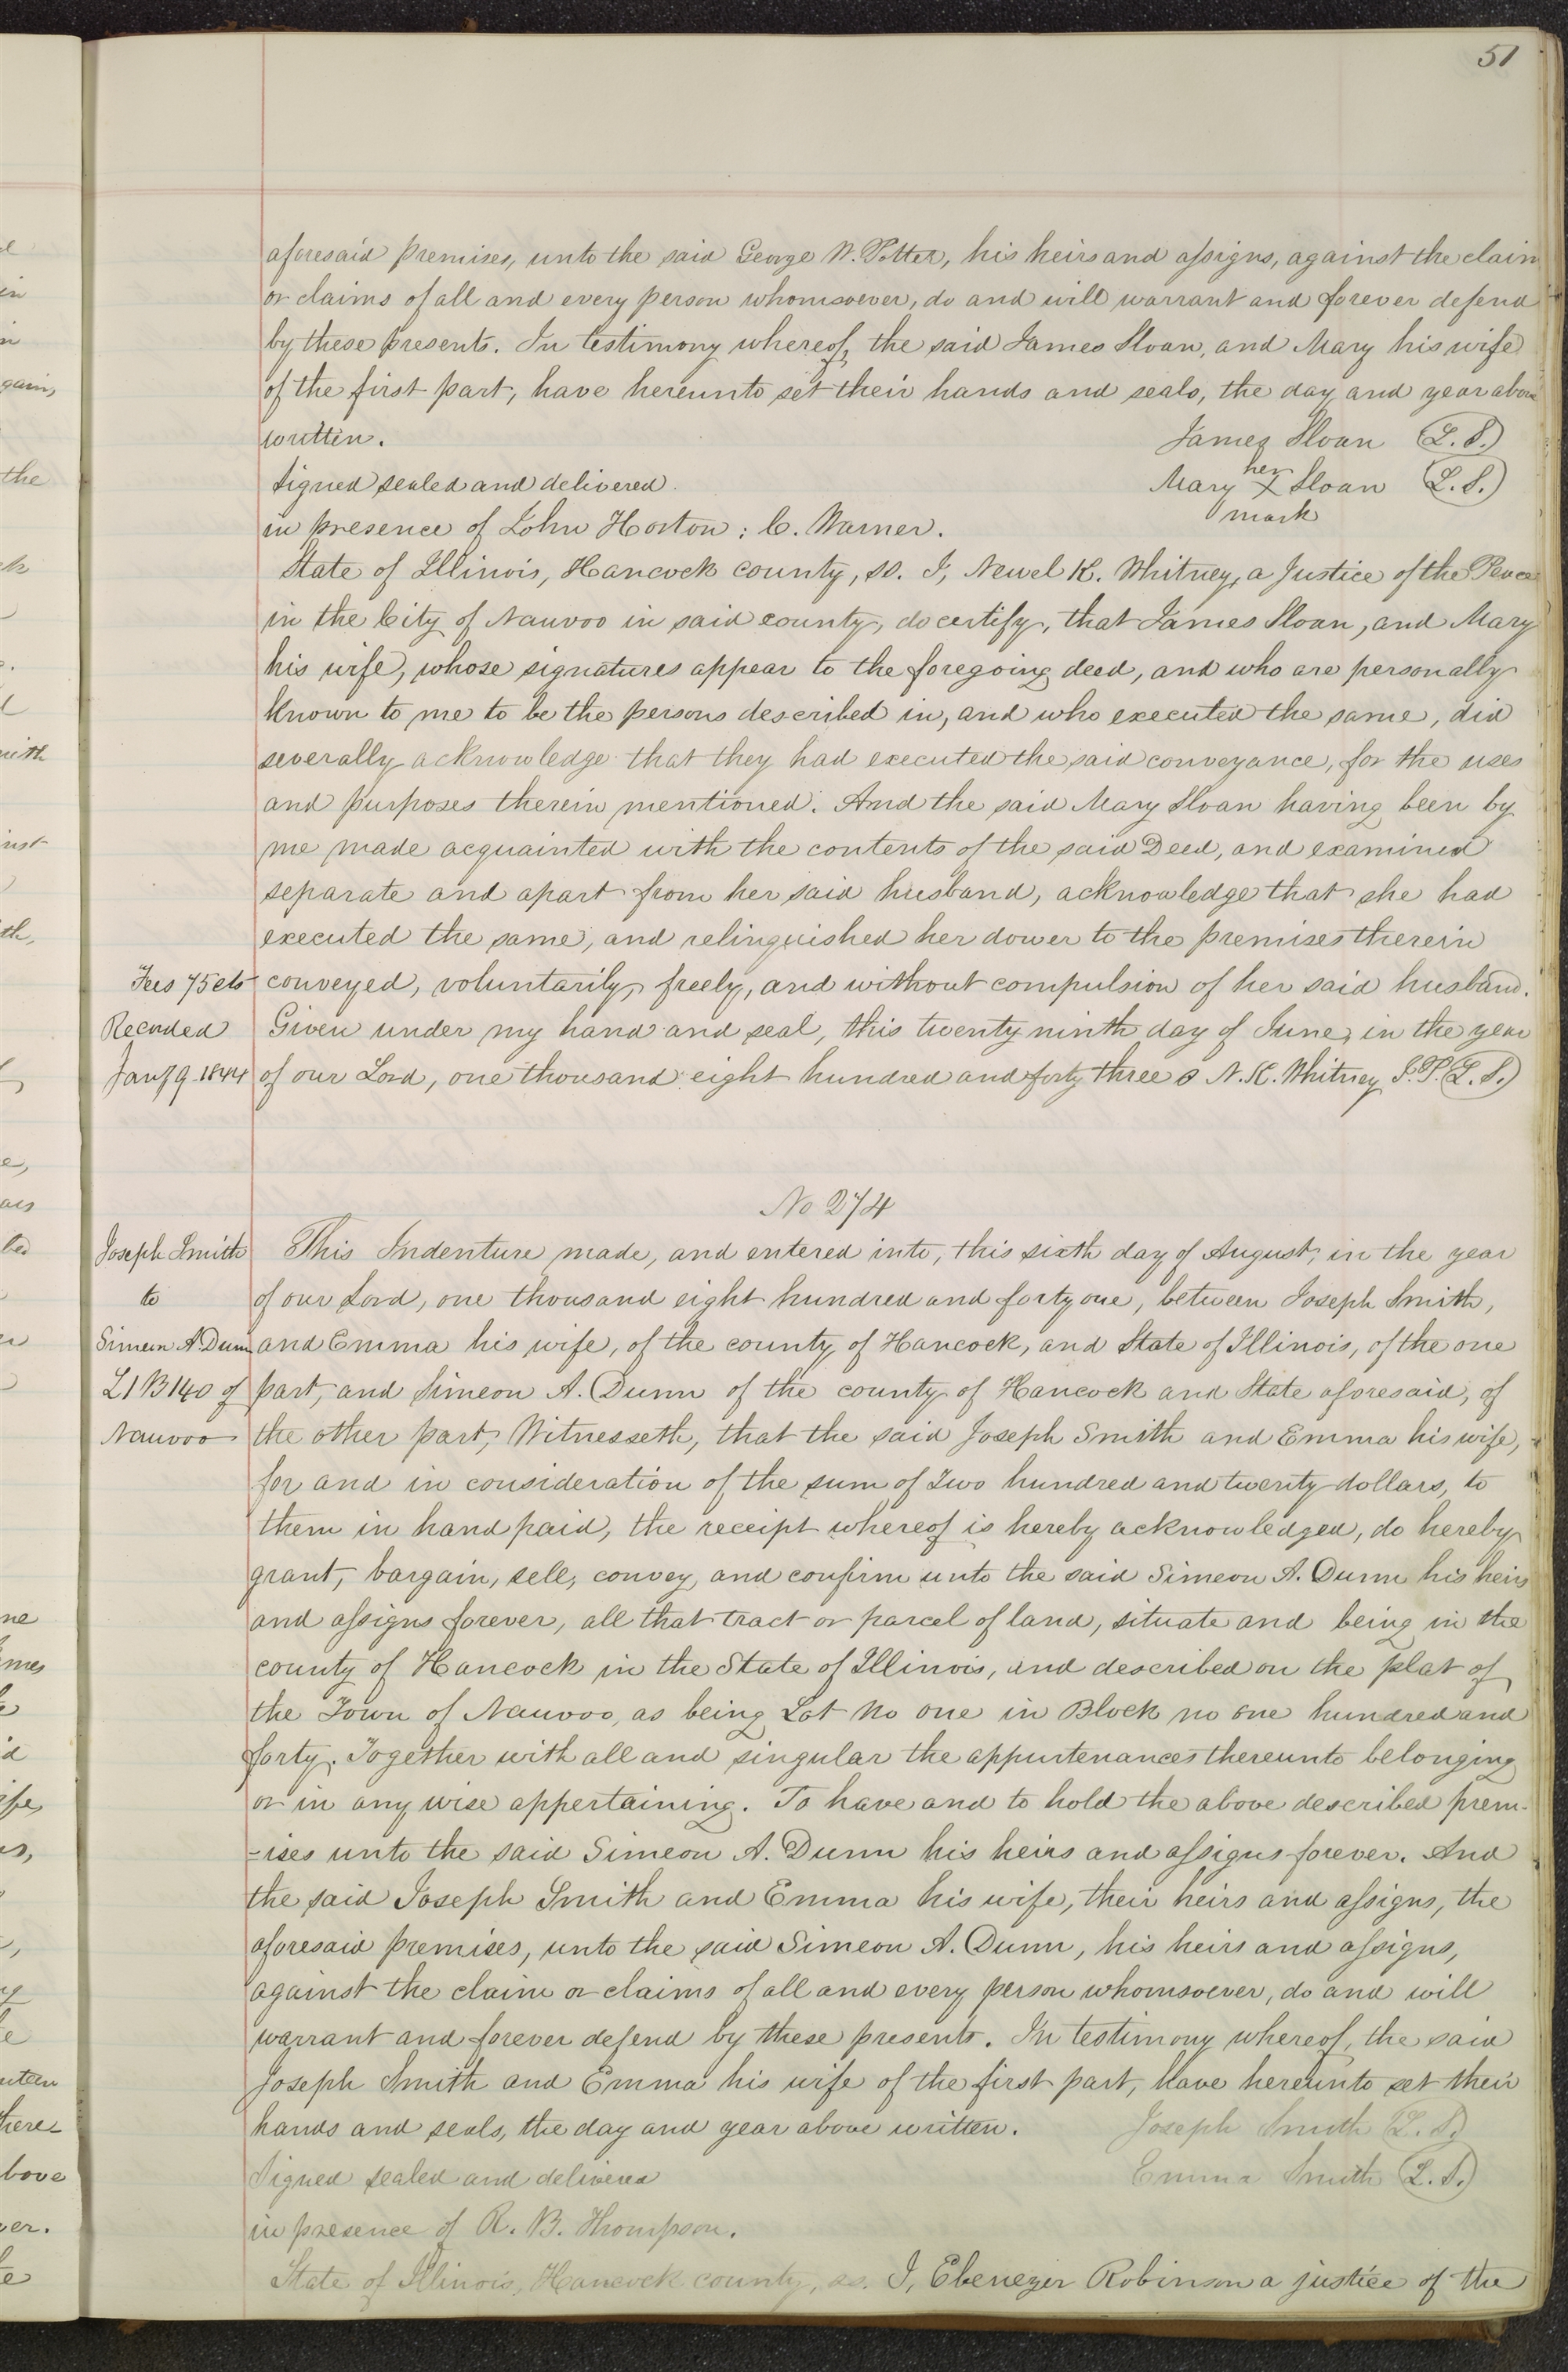 51
aforesaid premises, unto the said George W. Potter, his heirs and assigns, against the claim
or claims of all and every person whomsoever, do and will warrant and forever defend
by these presents. In testimony whereof, the said James Sloan, and Mary his wife
of the first part, have hereunto set their hands and seals, the day and year above
written. James Sloan (L.S.)
Signed sealed and delivered. Mary her X mark Sloan (L.S.)
in presence of John Horton; C. Warner.
State of Illinois, Hancock county, ss. I, Newel K. Whitney, a Justice of the Peace
in the City of Nauvoo in said county, do certify, that James Sloan, and Mary
his wife, whose signatures appear to the foregoing deed, and who are personally
known to me to be the persons described in, and who executed the same, did
severally acknowledge that they had executed the said conveyance, for the uses
and purposes therein mentioned. And the said Mary Sloan having been by
me made acquainted with the contents of the said Deed, and examined
separate and apart from her said husband, acknowledge that she had
executed the same, and relinquished her dower to the premises therein
Fees 75 cts conveyed, voluntarily, freely, and without compulsion of her said husband.
Recorded Given under my hand and seal, this twenty ninth day of June, in the year
Jany 9 1844 of our Lord, one thousand eight hundred and forty three N. K. Whitney J.P. (L.S.)
No 274
Joseph Smith This Indenture made, and entered into, this sixth day of August, in the year
to of our Lord, one thousand eight hundred and forty one, between Joseph Smith,
Simeon A. Dunn and Emma his wife, of the county of Hancock, and State of Illinois, of the one
L 1 B 140 of part, and Simeon A. Dunn of the county of Hancock and State aforesaid, of
Nauvoo the other part, Witnesseth, that the said Joseph Smith and Emma his wife,
for and in consideration of the sum of Two hundred and twenty dollars, to
them in hand paid, the receipt whereof is hereby acknowledged, do hereby
grant, bargain, sell, convey, and confirm unto the said Simeon A. Dunn his heirs
and assigns forever, all that tract or parcel of land, situate and being in the
county of Hancock in the State of Illinois, and described on the plat of
the Town of Nauvoo, as being Lot No one in Block no one hundred and
forty. Together with all and singular the appurtenances thereunto belonging
or in any wise appertaining. To have and to hold the above described prem-
-ises unto the said Simeon A. Dunn his heirs and assigns forever. And
the said Joseph Smith and Emma his wife, their heirs and assigns, the
aforesaid premises, unto the said Simeon A. Dunn, his heirs and assigns,
against the claim or claims of all and every person whomsoever, do and will
warrant and forever defend by these presents. In testimony whereof, the said
Joseph Smith and Emma his wife of the first part, have hereunto set their
hands and seals, the day and year above written. Joseph Smith (L.S.)
Signed sealed and delivered Emma Smith (L.S.)
in presence of R. B. Thompson.
State of Illinois, Hancock county, ss. I, Ebenezer Robinson a justice of the